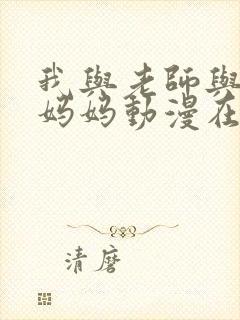 我與老師與
媽媽動漫在
清麿